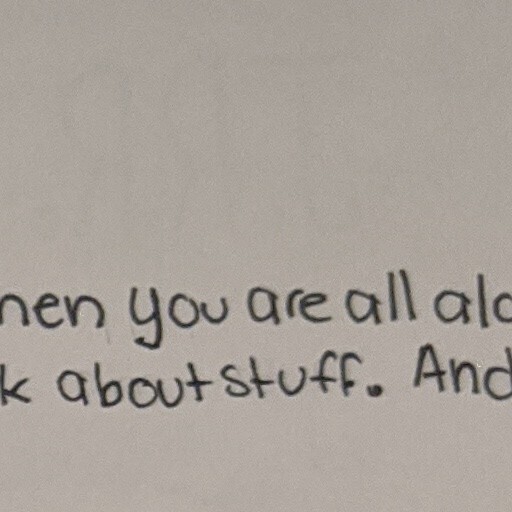 hen you are all alo
k about stuff. And